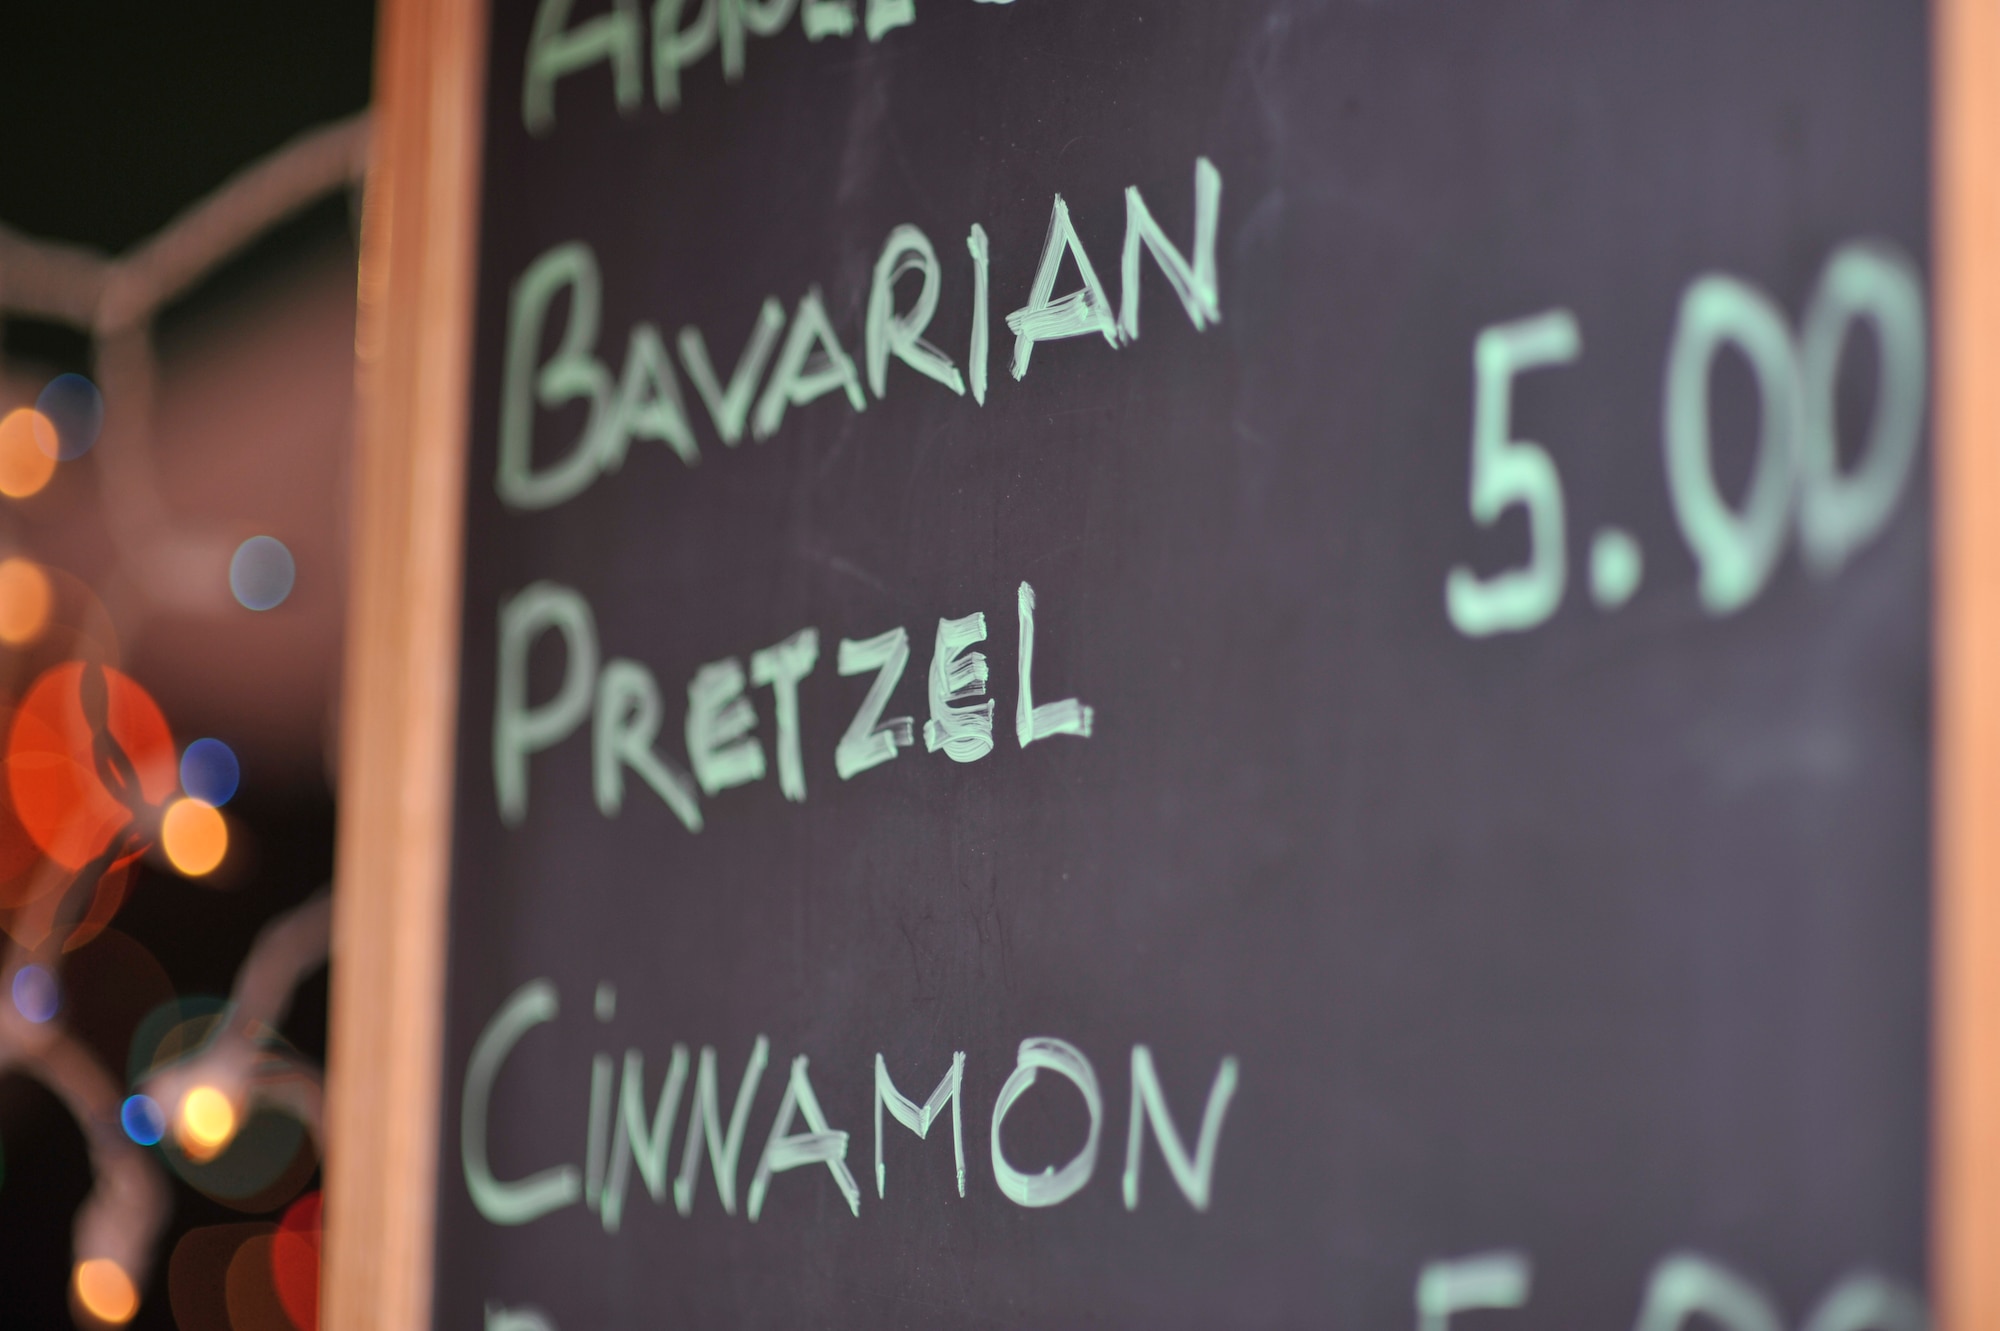 BAVARIAN
PRETZEL 5.00
CINNAMON